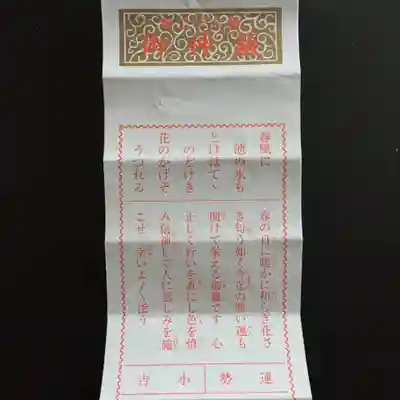 御神籤
春風に
池の氷も
とけはてゝ
のどけき
花のかげぞ
うつれる
春の日に暖かに和らぎ花さ
き匂う如く今迄の悪い運も
開けて栄える御籤です 心
正しく行いを直にし色を慎
み信神して人に慈しみを施
こせ
運勢
小吉